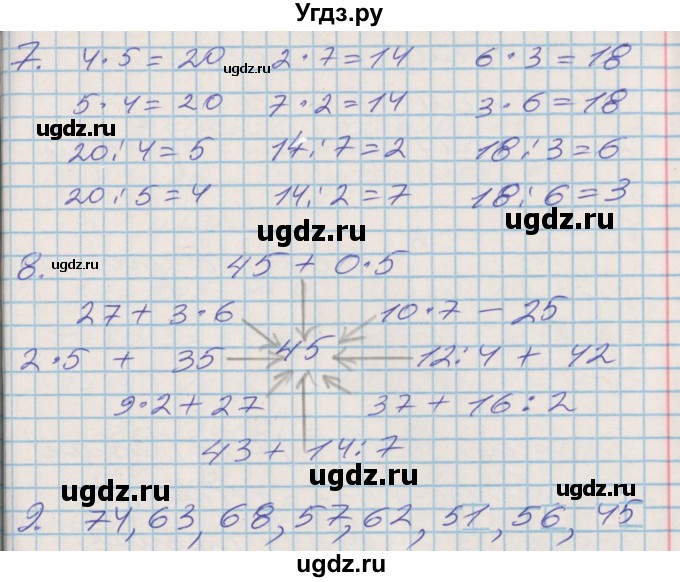 Угдз.ру
7. 4·5=20 ugdz.ru 2·7=14 6·3=18
5·4=20 7·2=14 3·6=18
ugdz.ru
20:4=5 14:7=2 18:3=6
20:5=4 14:2=7 18:6=3
ugdz.ru ugdz.ru
8. ugdz.ru 45+0·5
27+3·6 10·7-25
2·5+35 45 12:4+42
9·2+27 37+16:2
43+14:7
ugdz.ru ugdz.ru
9. 74, 63, 68, 57, 62, 51, 56, 45
ugdz.ru